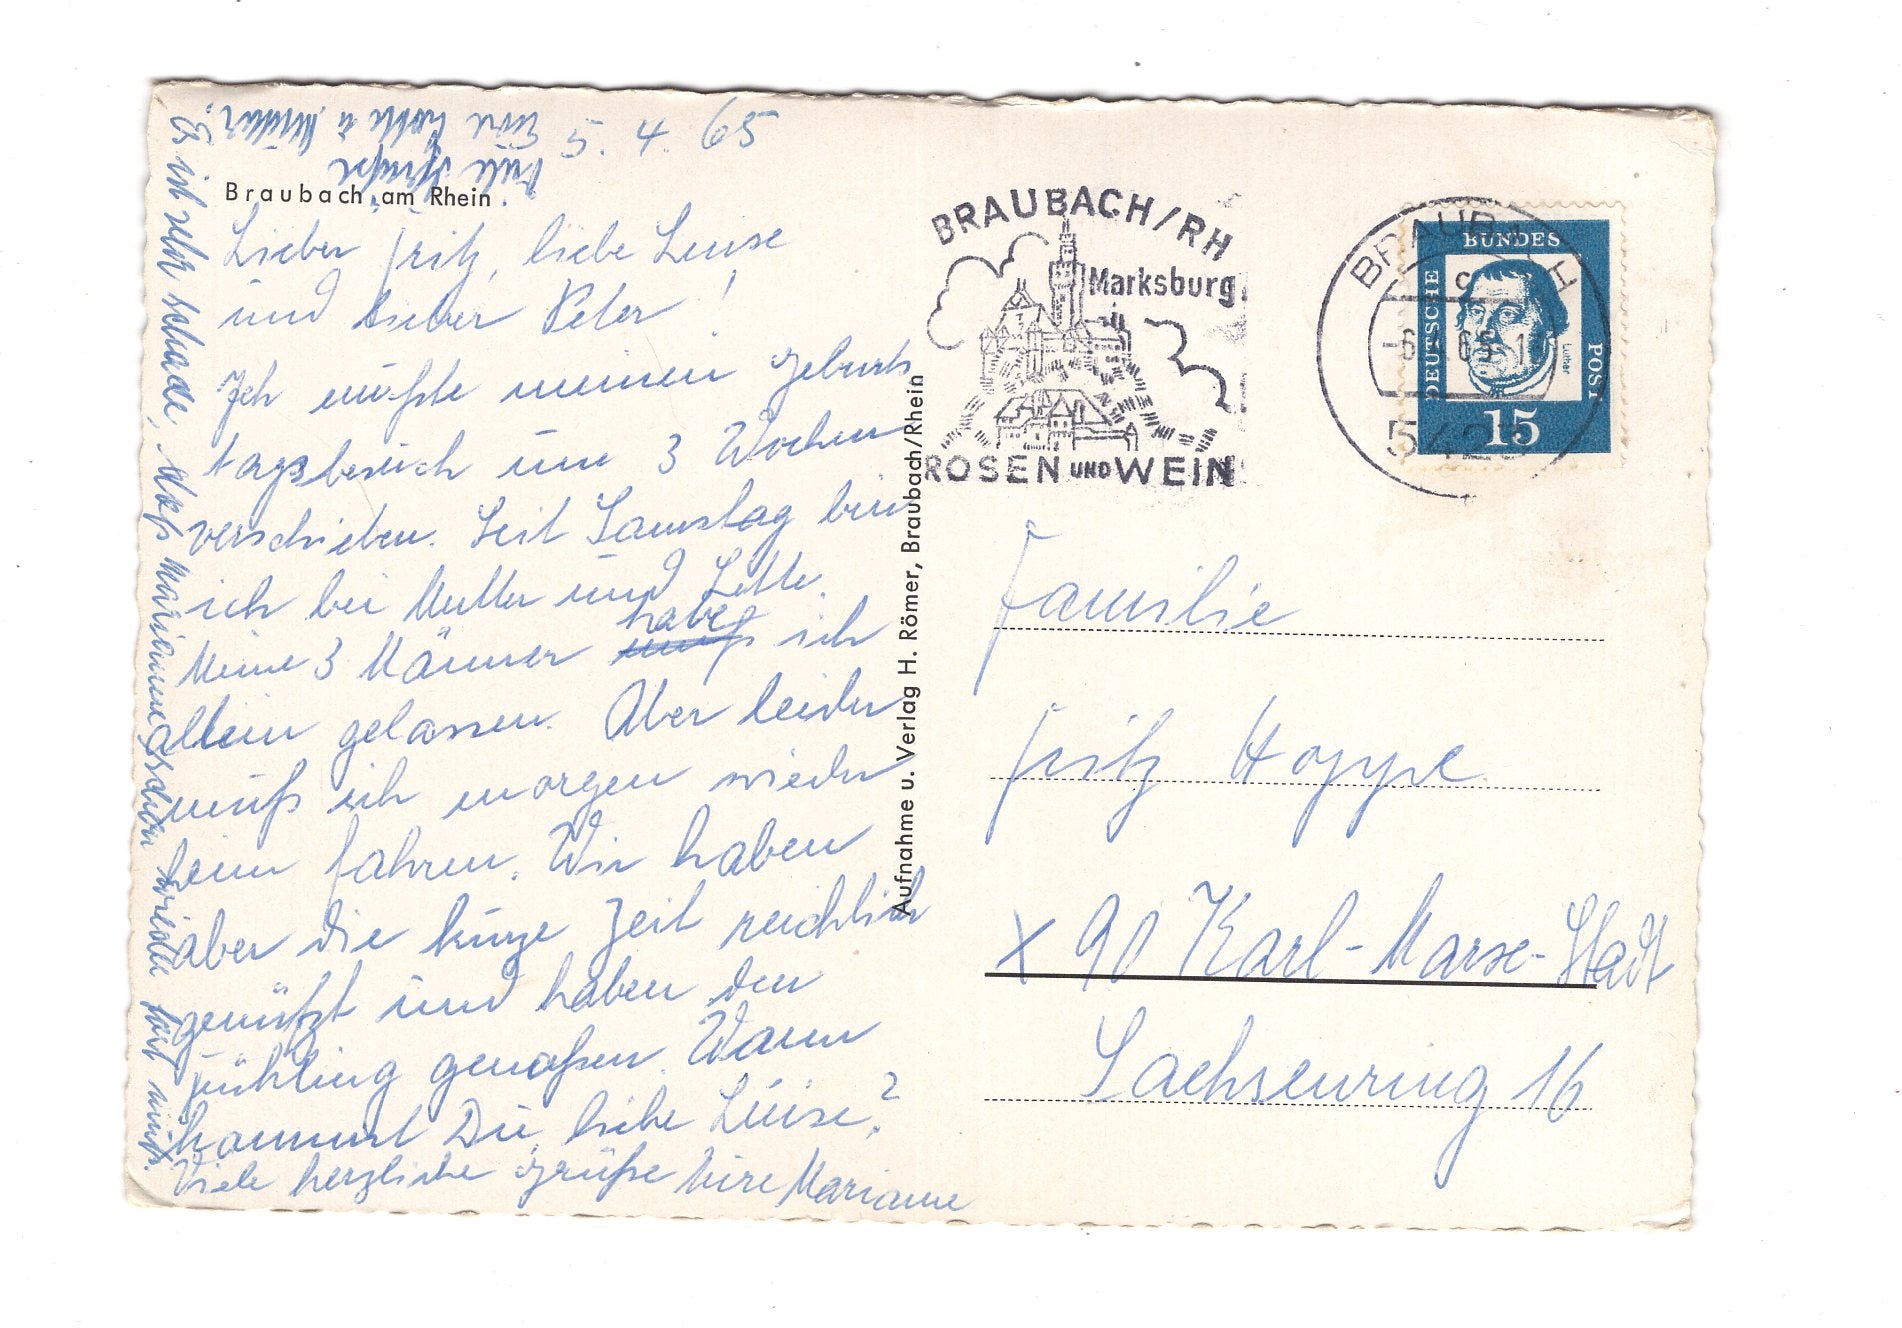 5. 4. 65
Braubach am Rhein
Lieber Fritz, liebe Luise
und lieber Peter!
Ich mußte meinen Geburts
tagsbesuch um 3 Wochen
verschieben. Seit Samstag bin
ich bei Mutter und Lotte.
Meine 3 Männer habe ich
allein gelassen. Aber leider
muß ich morgen wieder
heim fahren. Wir haben
aber die kurze Zeit reichlich
genützt und haben den
Frühling genoßen. Wann
kommst Du, liebe Luise?
Viele herzliche Grüße Eure Marianne
Es ist sehr schade, daß Marianne schon wieder fort muß.
Viele Grüße
Eure Lotte u. Mutter.
Aufnahme u. Verlag H. Römer, Braubach/Rhein
BRAUBACH/RH
Marksburg
ROSEN UND WEIN
BRAUBACH
c
6. 65-1
5423
DEUTSCHE
BUNDES
POST
Luther
15
Familie
Fritz Hoppe
X 90 Karl-Marx-Stadt
Sachsenring 16